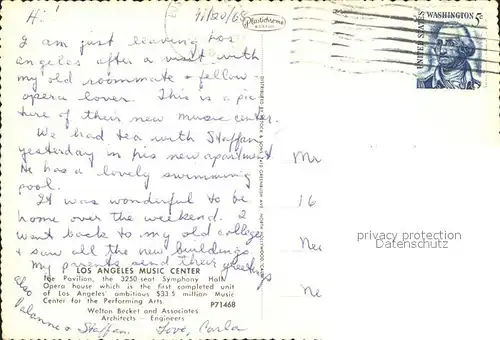 Hi! 11/20/65
I am just leaving Los
Angeles after a visit with
my old roommate & fellow
opera lover. This is a pic-
ture of their new music center.
We had tea with Staffan
yesterday in his new apartment
He has a lovely swimming
pool.
It was wonderful to be
home over the weekend. I
went back to my old college
& saw all the new buildings
My parents send their greetings
LOS ANGELES MUSIC CENTER
The Pavilion, the 3250 seat Symphony Hall,
Opera house which is the first completed unit
of Los Angeles' ambitious $33.5 million Music
Center for the Performing Arts.
P71468
Welton Becket and Associates
Architects — Engineers
also
& Staffan. Love, Carla
Plastichrome
DISTRIBUTED BY MITOCK & SONS, NORTH HOLLYWOOD, CALIF.
UNITED STATES
WASHINGTON 5c
Mr
16
Ne
Ne
privacy protection
Datenschutz